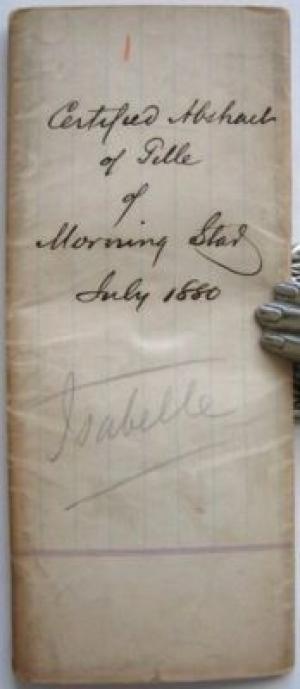 Certified Abstract
of Title
of
Morning Star
July 1880
Isabelle